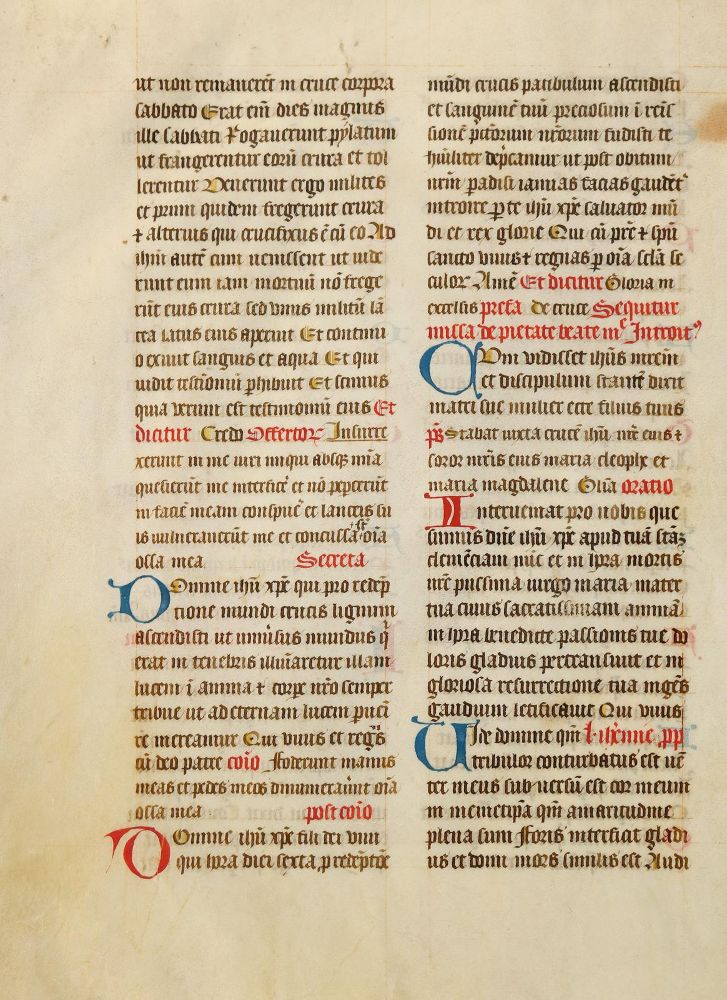 ut non remanerēt in cruce corpora
sabbato Erat em̄ dies magnus
ille sabbati Rogauerunt pylatum
ut frangerentur eorū crura et tol
lerentur Venerunt ergo milites
et primi quidem fregerunt crura
⁊ alterius qui crucifixus ē cū eo Ad
ihm̄ autē cum uenissent ut uide
runt eum iam mortuū nō frege
rūt eius crura sed vnus militū lā
cea latus eius aperuit Et continu
o exiuit sanguis et aqua Et qui
uidit testīoniū ꝑhibuit Et scimus
quia verum est testimonium eius Et
dicitur Credo Offertor Insurre
xerunt in me uiri iniqui absqꝫ mīa
quesierūt me interficē et nō peꝑcerūt
in faciē meam conspuē et lanceis su
is uulnerauerūt me et concussa sūt oīa
ossa mea Secreta
Domine ihū xp̄e qui pro redēp
tione mundi crucis lignum
ascendisti ut uniūsus mundus q̄
erat in tenebris illuīaretur illam
lucem ī anima ⁊ corpē nr̄o semper
tribue ut ad eternam lucem ꝑueī
re mereamur Qui viuis et regꝫ
cū deo patre coīo Foderunt manus
meas et pedes meos dinumerauūt oīa
ossa mea post coīo
Domine ihū xp̄e fili dei viui
qui hora diei sexta ꝓ redēptōe
mūdi crucis patibulum ascendisti
et sanguinē tuū preciosum ī remis
sionē pctōrum nr̄orum fudisti te
hūiliter dep̄camur ut post obitum
nr̄m padisi ianuas facias gaudēt
introire ꝑ te ihū xp̄e saluator mū
di et rex glorie Qui cū pr̄e ⁊ spū
sancto viuis ⁊ regnas ꝑ oīa sclā se
culor Amē Et dicitur Gloria in
excelsis prefa de cruce Sequitur
missa de pietate beate mē Introit
Cum vidisset ihūs mr̄em
et discipulum stantē dixit
matri sue mulier ecce filius tuus
p̄s Stabat iuxta crucē ihū mr̄ eius ⁊
soror mr̄is eius maria cleophe et
maria magdalene Gl̄ia oratio
Interueniat pro nobis que
sumus dn̄e ihū xp̄e apud tuā scāꝫ
clemēciam nūc et in hora mortis
nr̄e piissima uirgo maria mater
tua cuius sacratissimam animā
in hora benedicte passionis tue do
loris gladius pertransiuit et in
gloriosa resurrectione tua ingēs
gaudium letificauit Qui viuis
Uide domine qm̄ l. iheremie pp̄
tribulor conturbatus est uē
ter meus sub uersū est cor meum
in memetipa qm̄ amaritudine
plena sum Foris interficit gladi
us et domi mors similis est Audi